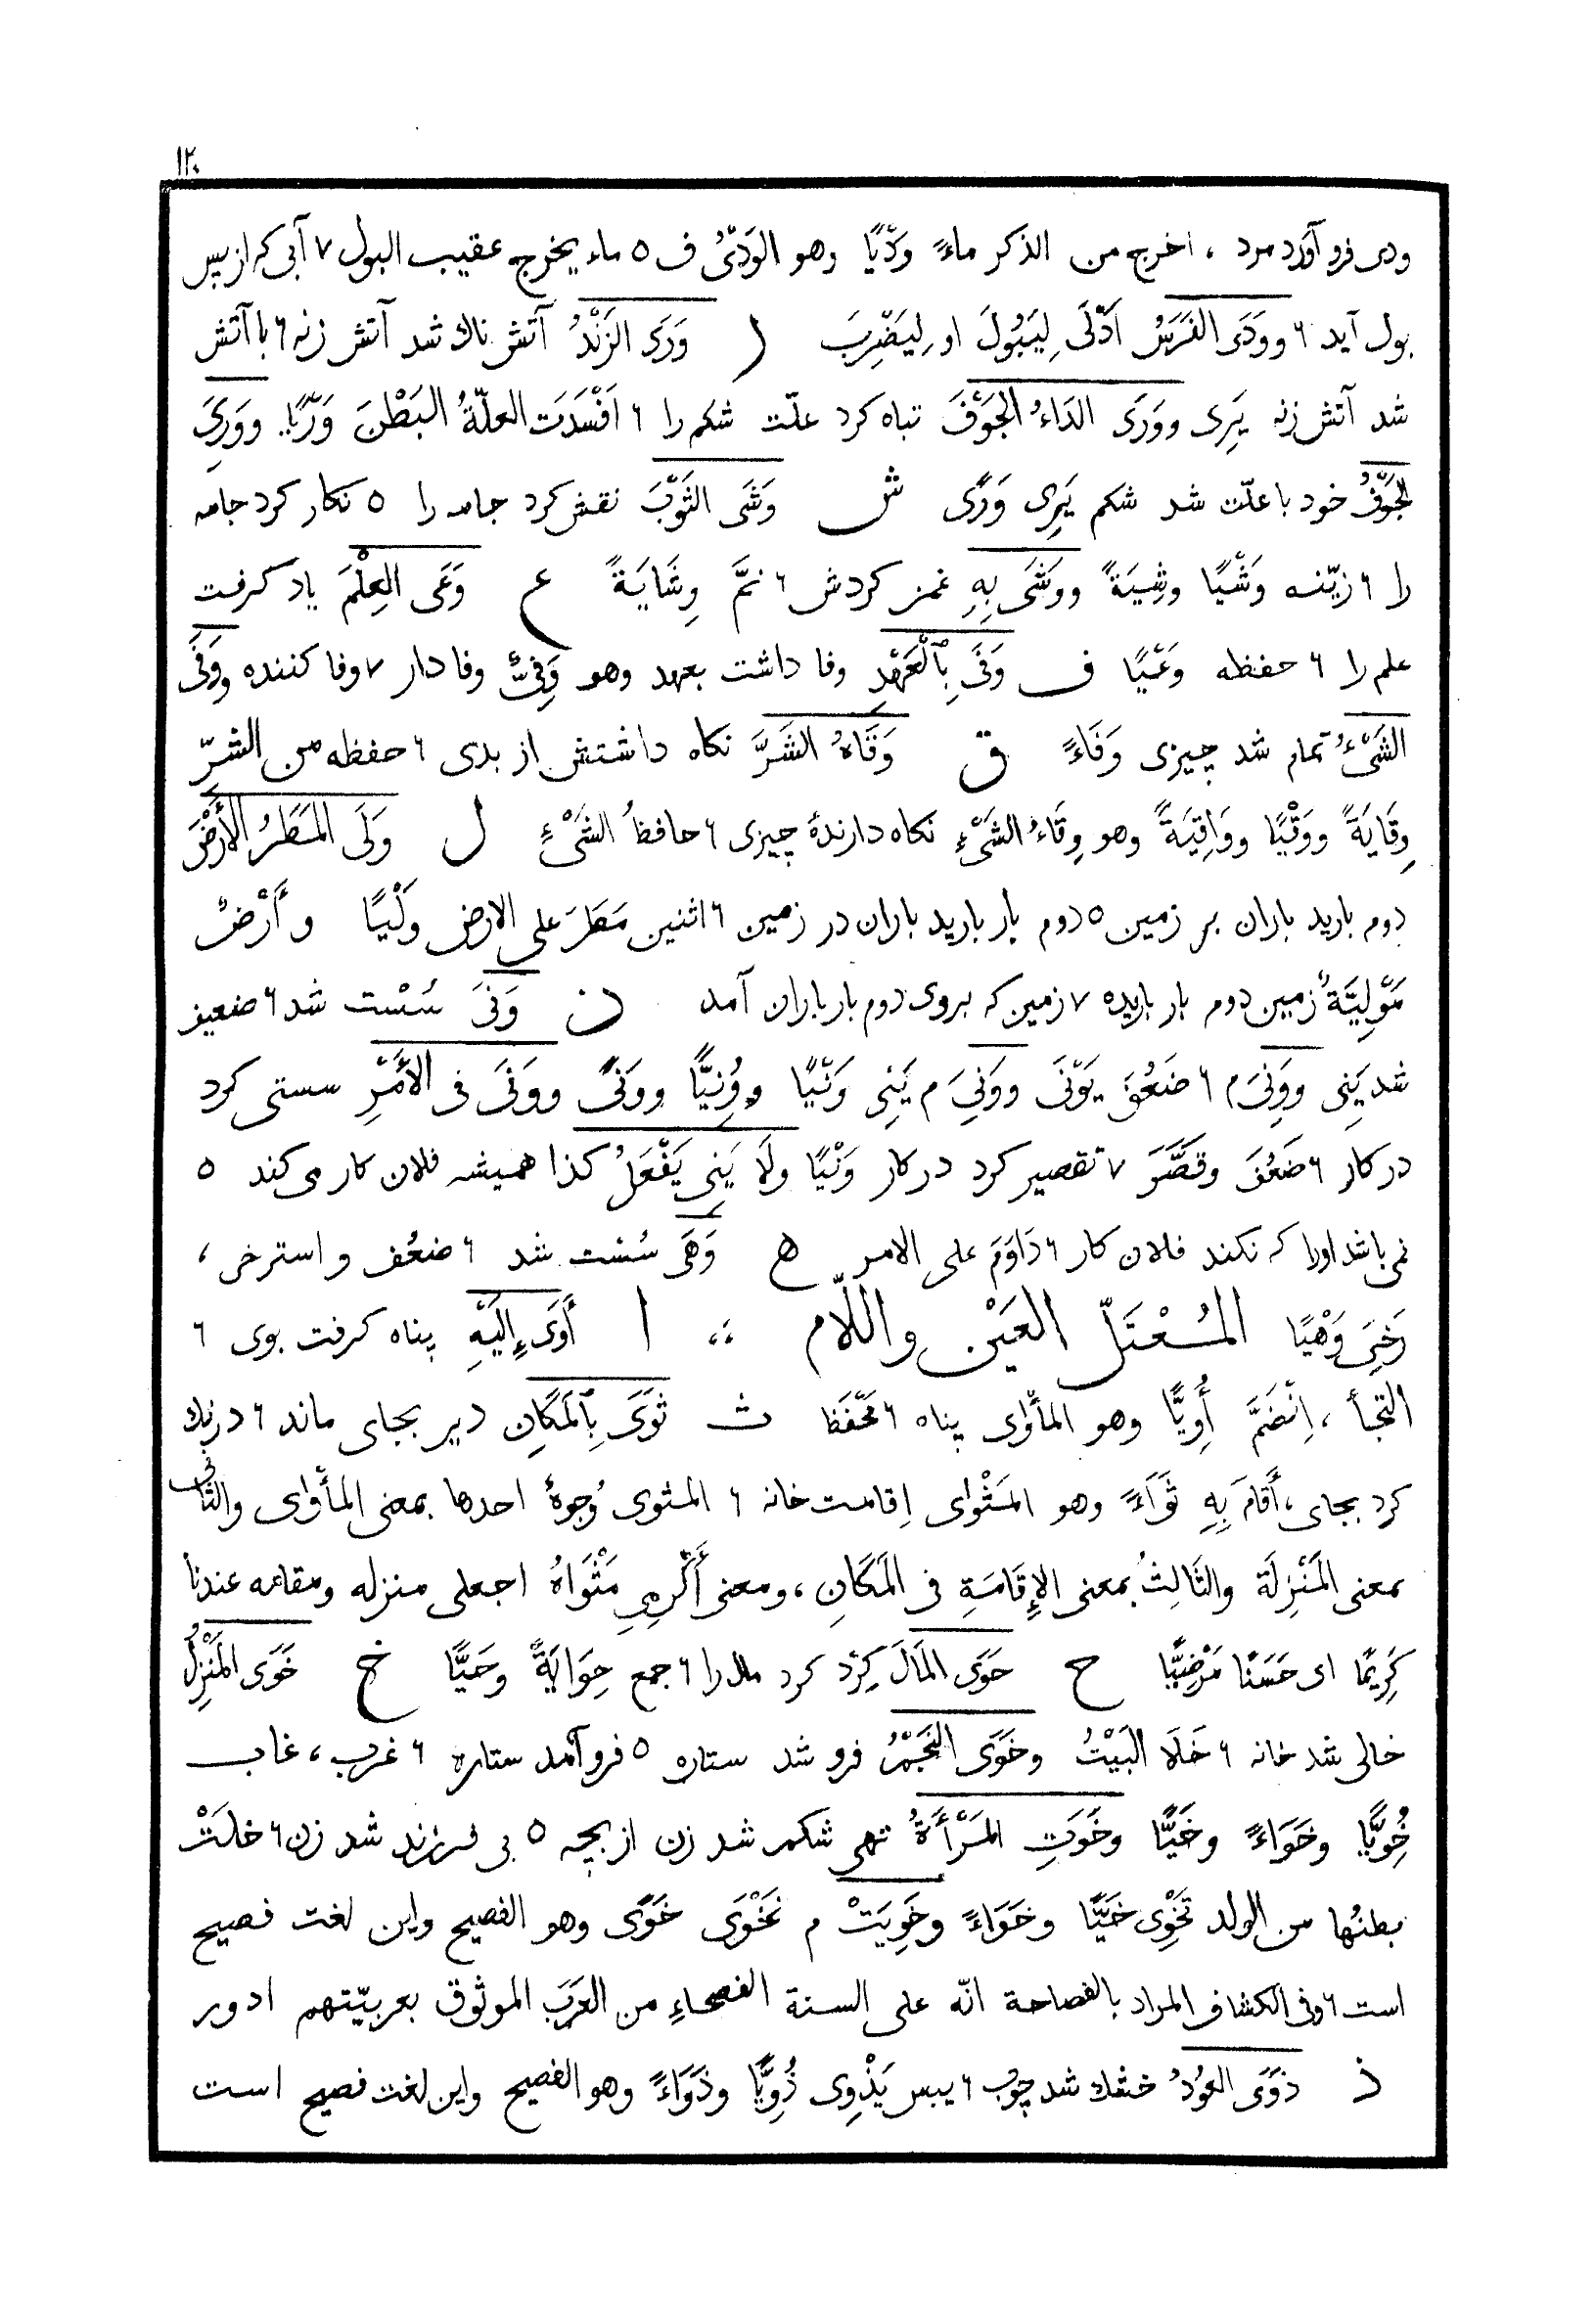 ١٢٠
ودی فرو آورد مرد ، اخرج من الذکر ماءً وَدْیًا وهو الوَدْیُ ف ٥ ماء یخرج عقیب البول ٧ آبی که از پس
بول آید ٦ ووَدَی الفَرَسُ اَدْلَی لِیَبُولَ او لِیَضْرِبَ ر وَرَی الزَنْدُ آتش ناك شد آتش زنه ٦ با آتش
شد آتش زنه یَرِی ووَرَی الدَاءُ الجَوْفَ تباه کرد علّت شکم را ٦ اَفْسَدَت العلّةُ البَطْنَ وَرْیًا. ووَرِیَ
الجَوْفُ خود با علّت شد شکم یَرِی وَرًی ش وَشَی الثَوْبَ نقش کرد جامه را ٥ نکار کرد جامه
را ٦ زیّنه وَشْیًا وشِیَةً ووَشَی بِهِ غمز کردش ٦ نَمَّ وِشَایَةً ع وَعَی العِلْمَ یاد کرفت
علم را ٦ حفظه وَعْیًا ف وَفَی بِالْعَهْدِ وفا داشت بعهد وهو وَفِیٌّ وفا دار ٧ وفا کننده ووَفَی
الشَیْءُ تمام شد چیزی وَفَاءً ق وَقَاهُ الشَرَّ نکاه داشتش از بدی ٦ حفظه من الشرّ
وِقَایَةً ووَقْیًا ووَاقِیَةً وهو وِقَاءُ الشَیْءِ نکاه دارندهٔ چیزی ٦ حافظُ الشَیْءِ ل وَلَی المَطَرُ الأَرْضَ
دوم بارید باران بر زمین ٥ دوم بار بارید باران در زمین ٦ اثنین مَطَرَ علی الارض وَلْیًا و أَرْضٌ
مَوْلِیَّةٌ زمین دوم بار باریده ٧ زمین که بروی دوم بار باران آمد ن وَنَی سُسْت شد ٦ ضعیف
شد یَنِی ووَنِیَ م ٦ ضَعُفَ یَوْنَی ووَنِیَ م یَنِی وَنْیًا ووُنِیًّا ووَنًی ووَنَی فی الأَمْرِ سستی کرد
در کار ٦ ضَعُفَ وقَصَّرَ ٧ تقصیر کرد در کار وَنْیًا ولَا یَنِی یَفْعَلُ کذا همیشه فلان کار می کند ٥
نمی باشد اورا که نکند فلان کار ٦ دَاوَمَ علی الامر ه وَهَی سُسْت شد ٦ ضعُف و استرخی ،
رَخِیَ وَهْیًا المُعْتَلّ العَیْن واللّام ،، ا أَوَی إِلَیْهِ پناه کرفت بوی ٦
التجأ ، اِنْضَمَّ أُوِیًّا وهو المأْوٰی پناه ٦ مَحْفَظ ث ثَوَی بِالْمَکَانِ دیر بجای ماند ٦ درنك
کرد بجای ، أَقَامَ بِهِ ثَوَاءً وهو المَثْوٰی اِقامت خانه ٦ المثوی وُجوهٌ احدها بمعنی المأوٰی والثانی
بمعنی المَنْزِلَة والثَالِثُ بمعنی الإِقَامَةِ فی المَکَانِ ، ومعنی أَکْرِمِی مَثْوَاهُ اجعلی منزله ومقامه عندنا
کَرِیمًا ای حَسَنًا مَرْضِیًّا ح حَوَی المَالَ کِرْد کرد مال را ٦ جمع حِوَایَةً وحَیًّا خ خَوَی المَنْزِلُ
خالی شد خانه ٦ خَلَا البَیْتُ وخَوَی النَجْمُ فرو شد ستاره ٥ فرو آمد ستاره ٦ غرب ، غاب
خُوِیًّا وخَوَاءً وخَیًّا وخَوَتِ المَرْأَةُ تهی شکم شد زن از بچه ٥ بی فرزند شد زن ٦ خلَتْ
بطنُها من الولد تَخْوِی خَیًّا وخَوَاءً وخَوِیَتْ م تَخْوَی خَوًی وهو الفصیح واین لغت فصیح
است ٦ وفی الکشاف المراد بالفصاحة انّه علی السنة الفصحاءِ من العَرَب الموثوق بعربیّتهم ادور
ذ ذَوَی العُودُ خشك شد چوب ٦ یبس یَذْوِی ذُوِیًّا وذَوَاءً وهو الفصیح واین لغت فصیح است